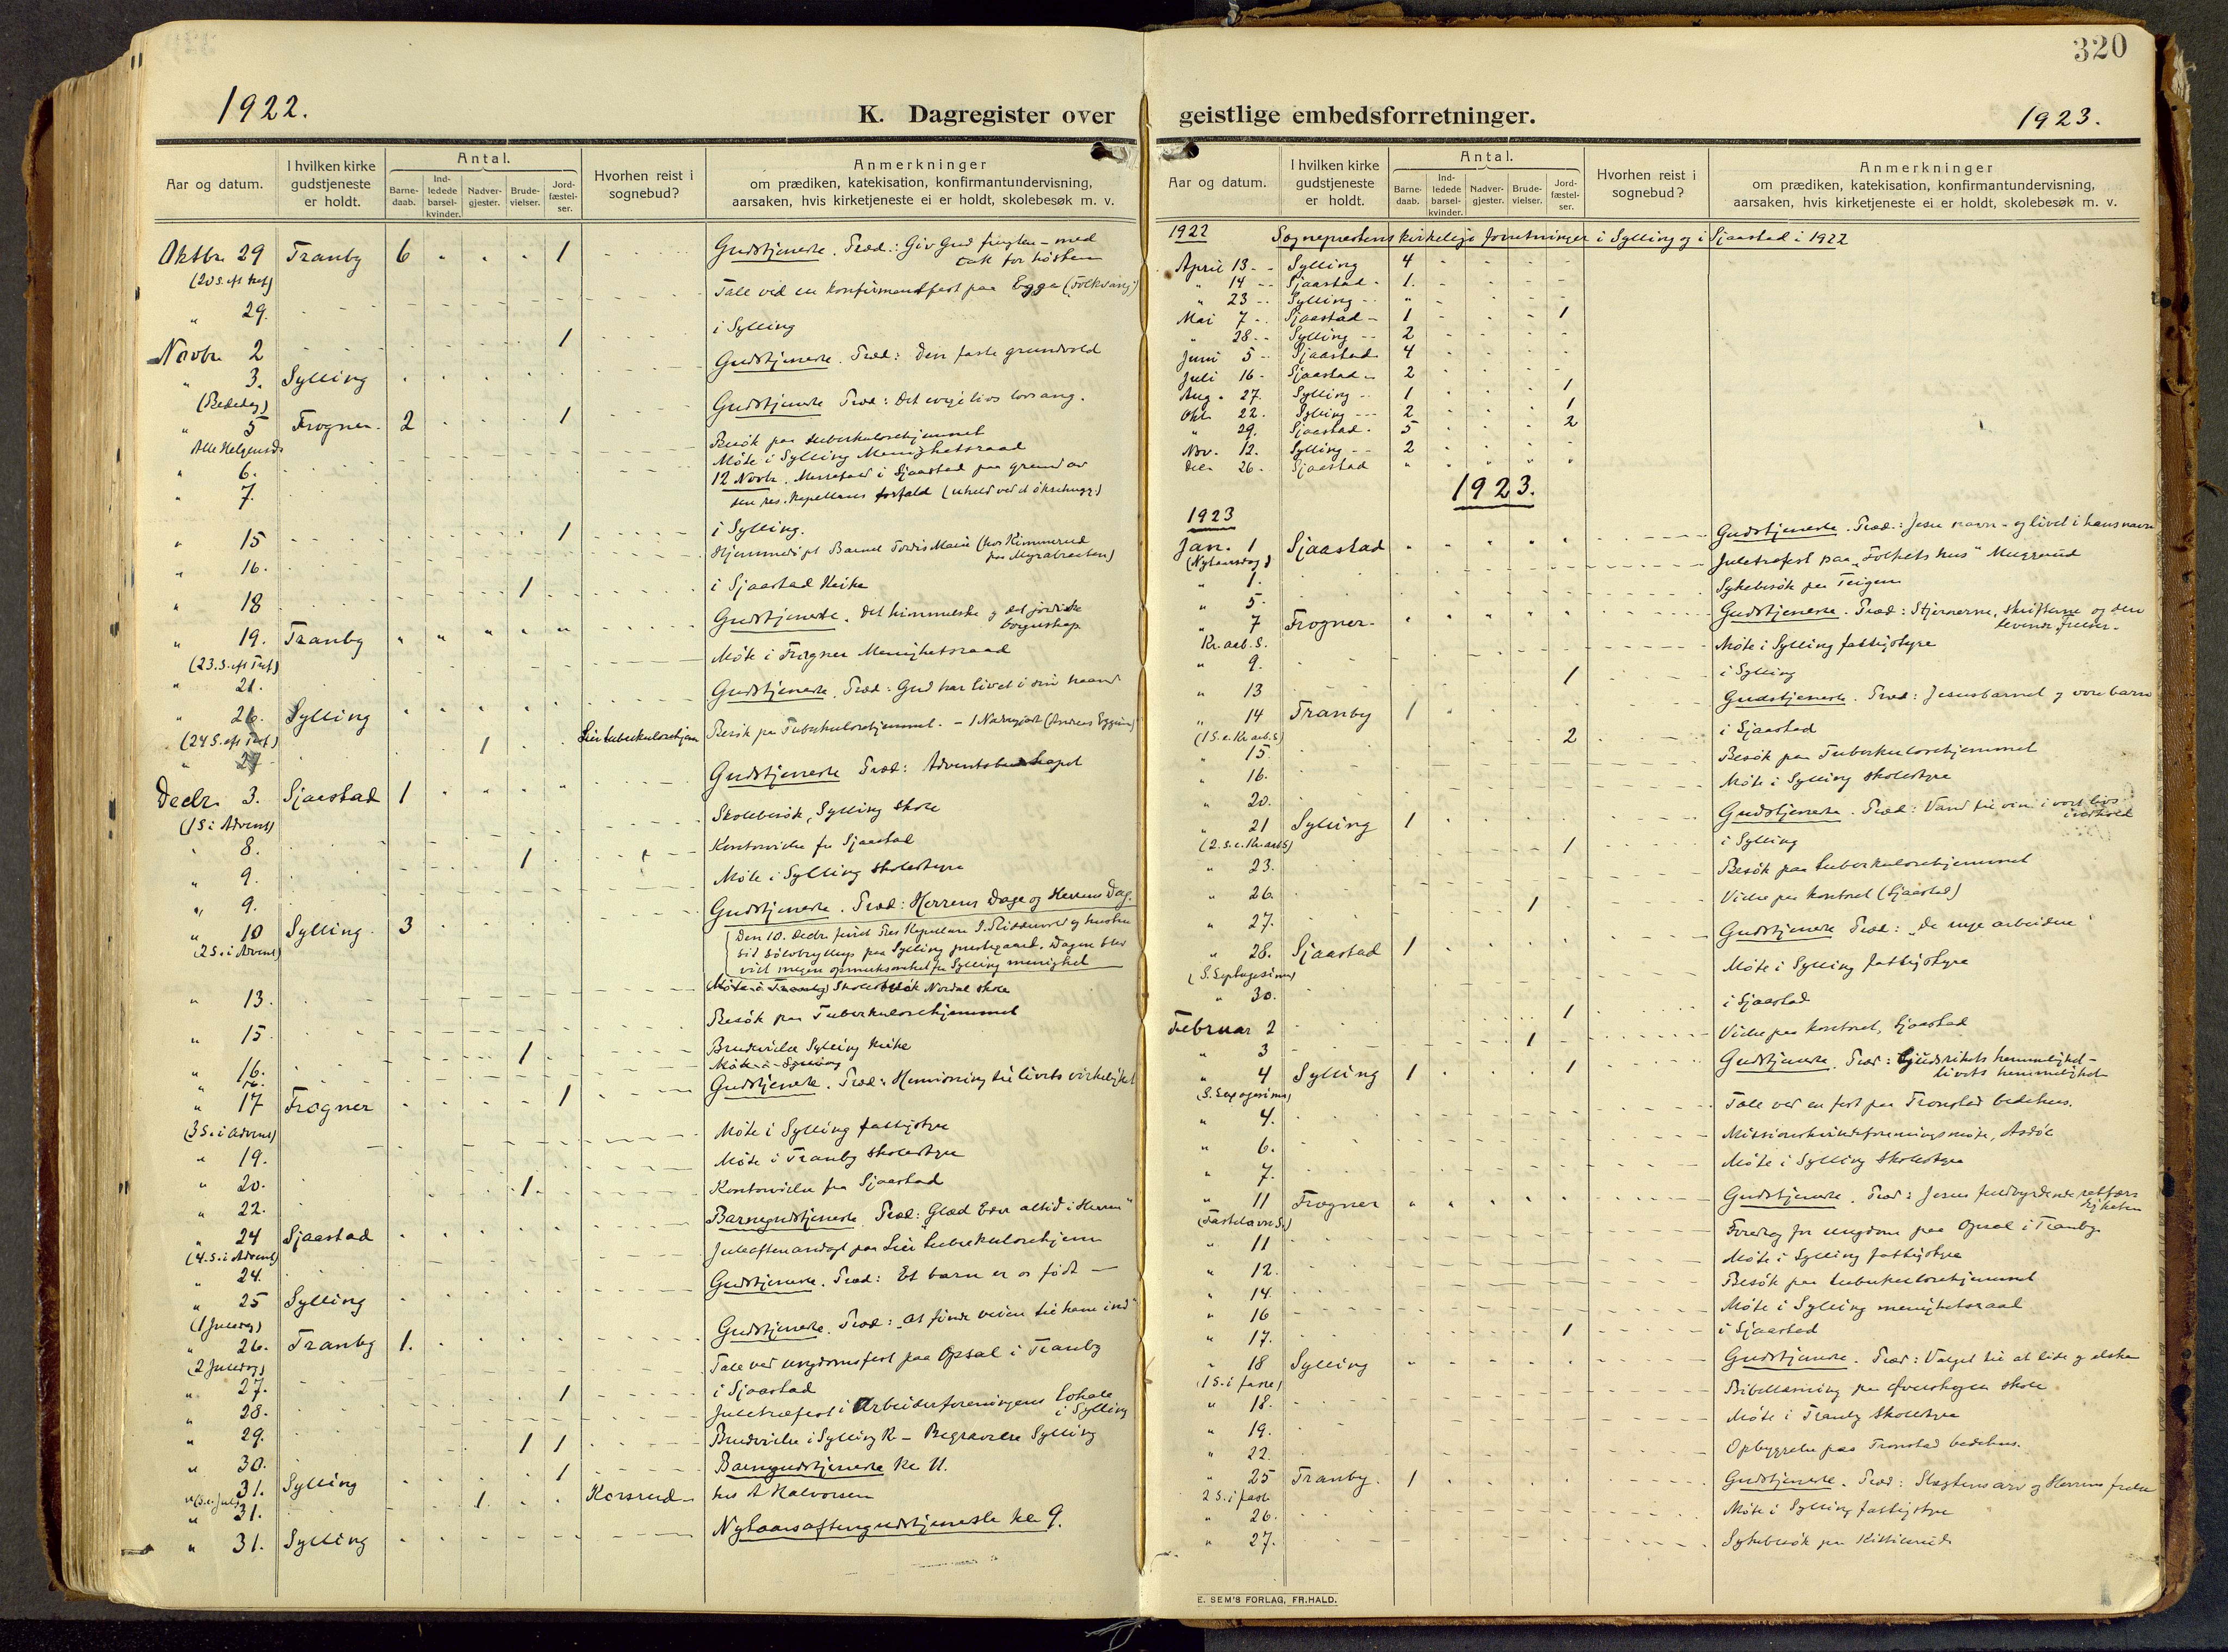 320
1922.
K. Dagregister over
geistlige embedsforretninger.
1923.
Aar og datum.
I hvilken kirke gudstjeneste er holdt.
Antal.
Barne-daab.
Ind-ledede barsel-kvinder.
Nadver-gjester.
Brude-vielser.
Jord-fæstel-ser.
Hvorhen reist i sognebud?
Anmerkninger
om prædiken, katekisation, konfirmantundervisning,
aarsaken, hvis kirketjeneste ei er holdt, skolebesøk m. v.
Oktbr 29 Tranby 6 1 Gudstjeneste. Præd.: Giv Gud frugten - med
tak for hösten
(20 S. eft Tref)
" 29. Tale ved en konfirmantfest paa Egge (Folkvang)
Novbr 2 1 i Sylling
" 3. Sylling Gudstjeneste. Præd: Den faste grundvold
(Bededag)
" 5 Frogner. 2 1 Gudstjeneste Præd: Det evige livs lovsang.
Alle Helgensd.
" 6. Besök paa tuberkulosehjemmet
" 7. Möte i Sylling Menighetsraad
12 Novbr. Messefald i Sjaastad paa grund av
den res. kapellans forfald
" 15 1 i Sylling.
" 16. Hjemmedöpt Barnet Tordis Marie
" 18 1 i Sjaastad Kirke
" 19. Tranby " " " " " Gudstjeneste. Det himmelske og det jordiske
borgerskap
(23. S. eft Tref)
" 21. Möte i Frogner Menighetsraad
" 26. Sylling Gudstjeneste. Præd: Gud har livet i sin haand
(24 S. eft Tref)
" 27 1 Lier tuberkulosehjem Besök paa Tuberkulosehjemmet. - 1 Nadvergjest
Decbr. 3. Sjaastad 1 Gudstjeneste Præd: Adventsbudskapet
(1 S. i Advent)
" 8. Skolebesök, Sylling skole
" 9. 1 Kontorvielse fra Sjaastad
" 9. Möte i Sylling skolestyre
" 10 Sylling. 3 Gudstjeneste. Præd: Herrens Dage og Herrens Dag.
(2 S. i Advent)
Den 10. Decbr feiret Res Kapellan og hustru
sit sölvbryllup paa Sylling prestegaard. Dagen blev
vist megen opmerksomhet fra Sylling menighet
" 13. Skolebesök Nordal skole
" 15. Besök paa Tuberkulosehjemmet
" 16. 1 Brudevielse Sylling Kirke
" 17 Frogner 1 Gudstjeneste. Præd: Henvisning til livets virkelighet
(3 S. i Advent)
" 19. Möte i Sylling fattigstyre
" 20. Möte i Tranby skolestyre
" 22. 1. Kontorvielse fra Sjaastad
" 24 Sjaastad Barnegudstjeneste Præd: "Glæd Eder altid i Herren"
(4. S. i Advent)
" 24. Juleaftenandagt paa Lier tuberkulosehjem
" 25 Sylling Gudstjeneste. Præd: Et barn er os födt -
(1 Juledag)
" 26. Tranby 1. Gudstjeneste. Præd: "At finde veien til ham ind"
(2 Juledag)
" 27. Tale ved ungdomsfest paa Opsal i Tranby
" 28. 1 i Sjaastad
" 29. Juletræfest i Arbeiderforeningens Lokale
i Sylling
" 30. 1 1 Brudevielse i Sylling K - Begravelse Sylling
" 31. Sylling 1 Barnegudstjeneste kl 11.
" 31. 1. Korsrud hos A Halvorsen
" 31. Sylling Nytaarsaftengudstjeneste kl 9.
Aar og datum.
I hvilken kirke gudstjeneste er holdt.
Antal.
Barne-daab.
Ind-ledede barsel-kvinder.
Nadver-gjester.
Brude-vielser.
Jord-fæstel-ser.
Hvorhen reist i sognebud?
Anmerkninger
om prædiken, katekisation, konfirmantundervisning,
aarsaken, hvis kirketjeneste ei er holdt, skolebesøk m. v.
1922 Sogneprestens kirkelige forretninger i Sylling og i Sjaastad i 1922
April 13 Sylling 4
" 14 Sjaastad 1.
" 23 Sylling "
Mai 7 Sjaastad 1 1
" 28 Sylling 2
Juni 5 Sjaastad 4
Juli 16 Sjaastad 2
Aug. 27. Sylling 1 1
Okt. 22. Sylling 2 1
" 29. Sjaastad 5 2
Nov. 12. Sylling 2
Decr 26. Sjaastad " " " " "
1923.
1923
Jan. 1 Sjaastad Gudstjeneste. Præd.: Jesu navn - og livet i hans navn
(Nytaarsdag)
" 1. Juletræfest paa "Folkets hus" Muggerud
" 5. Sykebesök paa Teigen
" 7 Frogner Gudstjeneste. Præd: Stjernerne, skrifterne og den
levende frelser.
Kr. aab. S.
" 9. Möte i Sylling fattigstyre
" 13 1 i Sylling
" 14 Tranby 1 Gudstjeneste. Præd: Jesusbarnet og vore barn
(1 S. e. Kr. aab. S)
" 15 2 i Sjaastad
" 16. Besök paa Tuberkulosehjemmet
" 20. Möte i Sylling skolestyre
" 21 Sylling 1 Gudstjeneste. Præd: Vand til vin i vort livs
indhold
(2. S. e. Kr. aab S)
" 23. 1 i Sylling
" 26. Besök paa tuberkulosehjemmet
" 27. 1 Vielse paa kontoret (Sjaastad)
" 28. Sjaastad 1 Gudstjeneste Præd: "De unge arbeidere"
(S. Septuagesima)
" 30. Möte i Sylling fattigstyre
Februar 2 1 i Sjaastad
" 3 1 Vielse paa kontoret, Sjaastad
" 4 Sylling 1 1 Gudstjeneste. Præd: Gudsrikets hemmelighet -
livets hemmelighet
(S. Sexagesima)
" 4. Tale ved en fest paa Tronstad bedehus.
" 6. Missionskvindeforeningsmöte, Asdöl
" 7. Möte i Sylling skolestyre
" 11 Frogner Gudstjeneste. Præd: Jesus fuldbyrdende retfærdigheten
(Fastelavns S.)
" 11 Foredrag for ungdom paa Opsal i Tranby.
" 12. Möte i Sylling fattigstyre
" 14. Besök paa tuberkulosehjemmet
" 16 Möte i Sylling menighetsraad
" 17. 1 i Sjaastad
" 18 Sylling Gudstjeneste. Præd: Valget til at lide og elske
(1 S. i faste)
" 18. Bibellæsning paa Överskogen skole
" 19. Möte i Tranby skolestyre
" 22. Opbyggelse paa Tronstad bedehus.
" 25 Tranby. 1 Gudstjeneste. Præd: Slægtens arv og Herrens frelse
2 S. i faste
" 26. Möte i Sylling fattigstyre
" 27. Sykebesök paa Kittilsrud
E. SEM'S FORLAG, FR.HALD.